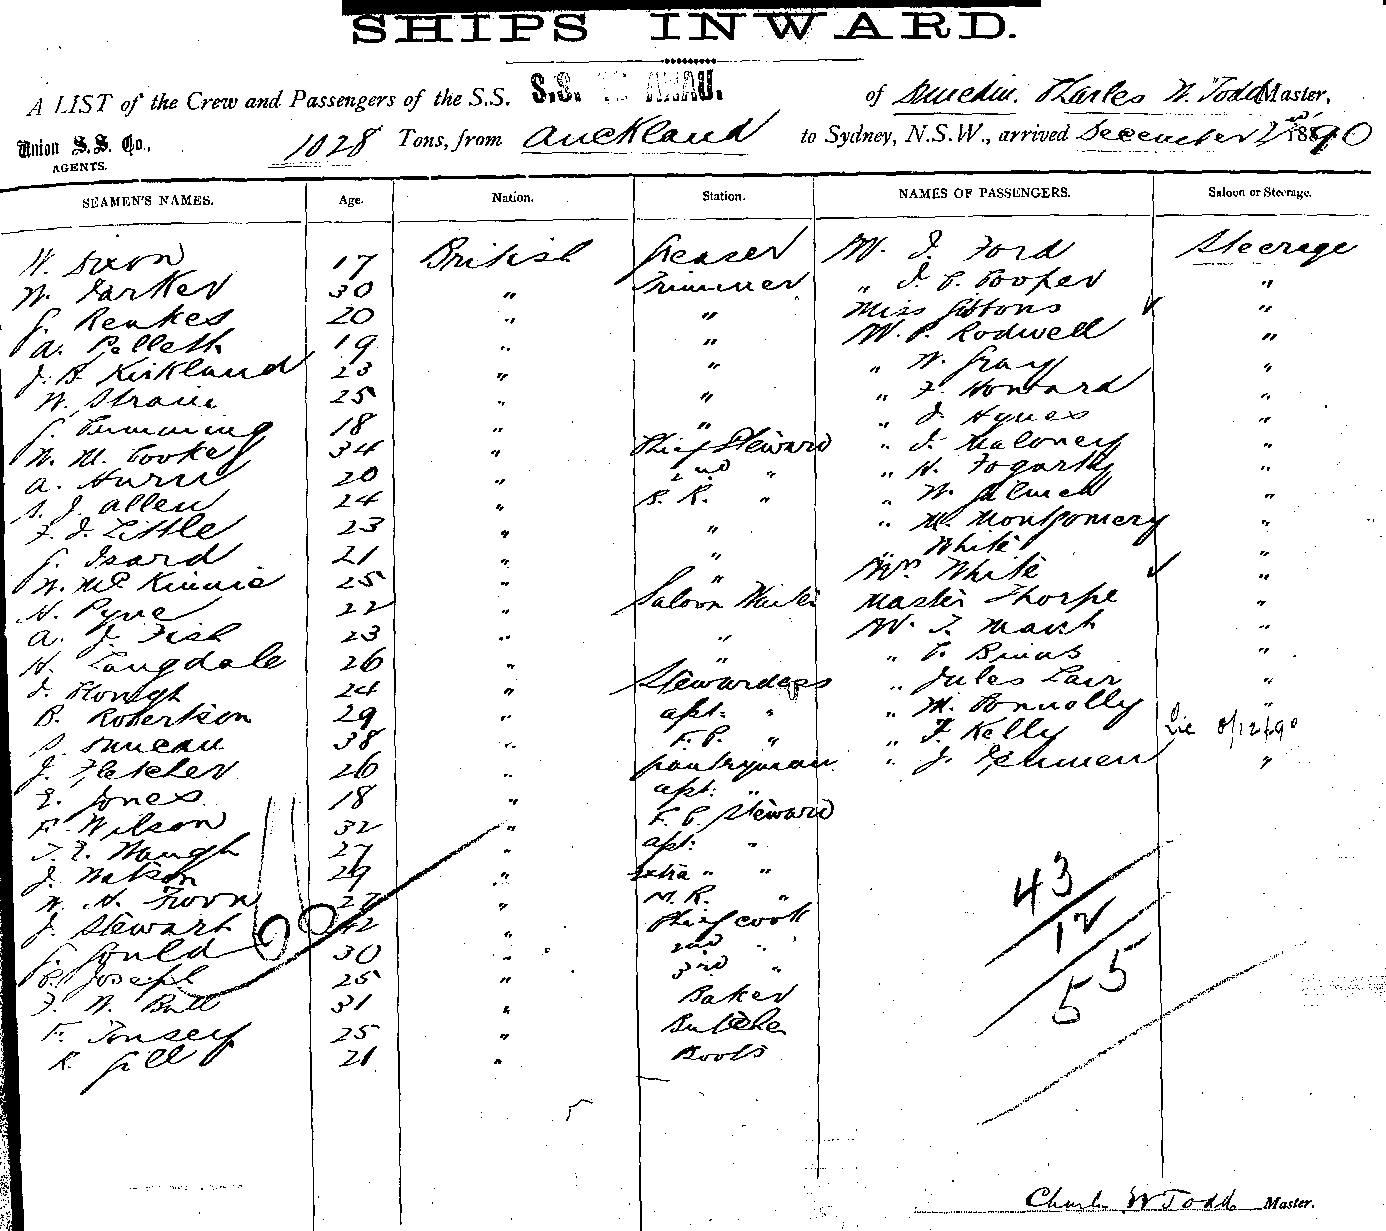 SHIPS INWARD.
A LIST of the Crew and Passengers of the S.S. S.S. TE ANAU. of Dunedin. Charles W. Todd Master,
Union S.S. Co., AGENTS. 1028 Tons, from Auckland to Sydney, N.S.W., arrived December 1890
SEAMEN'S NAMES. Age. Nation. Station. NAMES OF PASSENGERS. Saloon or Steerage.
W. Dixon 17 British Greaser Mr. J. Ford Steerage
W. Parker 30 " Trimmer " J. C. Cooper "
G. Renkes 20 " " Miss Gibbons "
A. Pellett 19 " " Mr. C. Rodwell "
J. B. Kirkland 23 " " " W. Gray "
W. Strain 25 " " " F. Howard "
G. Cumming 18 " " " J. Hynes "
W. M. Cooke 34 " Chief Steward " J. Maloney "
A. 20 " 2nd " " H. Fogarty "
S. J. Allen 24 " B. R. " " W. "
F. J. Little 23 " " " M. Montgomery "
G. Izard 21 " " " White "
W. McKinnie 25 " " Mrs. White "
H. Pyne 22 " Saloon Waiter Master Thorpe "
A. J. Fish 23 " " Mr. T. "
H. Langdale 26 " " " C. "
J. Clough 24 " Stewardess " Jules "
B. Robertson 29 " asst: " " M. Connolly "
S. Duncan 38 " F. C. " " F. Kelly 8/12/90
J. Fletcher 26 " Pantryman " J. "
E. Jones 18 " asst: "
F. Wilson 32 " F. C. Steward
T. E. Waugh 27 " asst: "
J. Watson 29 " Extra " "
W. H. 27 " M. R. "
J. Stewart 42 " Chief Cook
G. Gould 30 " 2nd "
C. Joseph 25 " 3rd "
F. W. Bull 31 " Baker
F. Tonsey 25 " Butcher
R. Gill 21 " Boots
43
12
55
Charles W Todd Master.